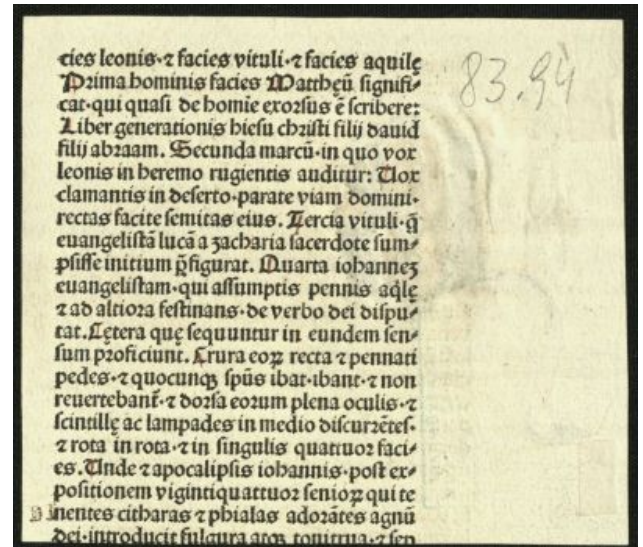 cies leonis·⁊ facies vituli·⁊ facies aquilę
Prima hominis facies Matthęū signifi⸗
cat·qui quasi de homīe exorsus ē scribere:
Liber generationis hiesu christi filij dauid
filij abraam. Secunda marcū·in quo vox
leonis in heremo rugientis auditur: Uox
clamantis in deserto·parate viam domini·
rectas facite semitas eius. Tercia vituli·q̄
euangelistā lucā a zacharia sacerdote sum⸗
psisse initium p̄figurat. Quarta iohannez
euangelistam·qui assumptis pennis aq̄lę
⁊ ad altiora festinans·de verbo dei dispu⸗
tat. Cętera quę sequuntur in eundem sen⸗
sum proficiunt. Crura eoꝝ recta ⁊ pennati
pedes·⁊ quocunqꝫ spūs ibat·ibant·⁊ non
reuertebant᷑·⁊ dorsa eorum plena oculis·⁊
scintillę ac lampades in medio discurrētes·
⁊ rota in rota·⁊ in singulis quattuor faci⸗
es. Unde ⁊ apocalipsis iohannis·post ex⸗
positionem vigintiquattuor senioꝝ qui te
nentes citharas ⁊ phialas adorātes agnū
dei·introducit fulgura atqꝫ tonitrua·⁊ sen
83.94